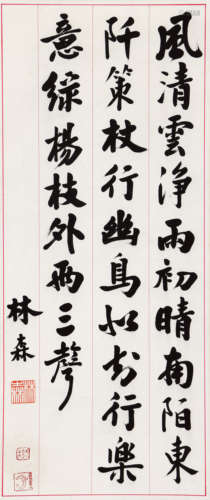 風清雲淨雨初晴南陌東
阡策杖行幽鳥似知行樂
意綠楊枝外兩三聲
林森